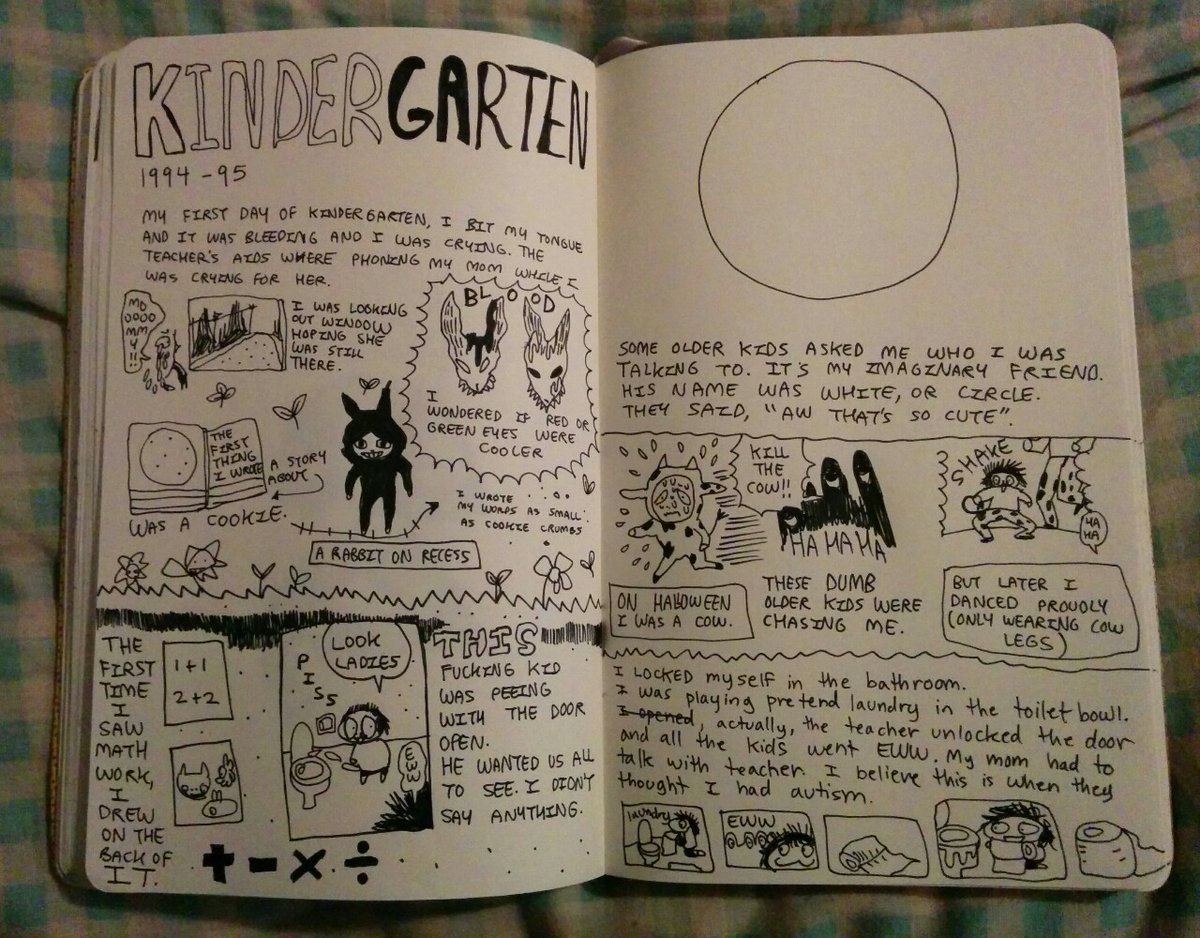 KINDERGARTEN
1994-95
MY FIRST DAY OF KINDERGARTEN, I BIT MY TONGUE
AND IT WAS BLEEDING AND I WAS CRYING. THE
TEACHER'S AIDS WHERE PHONING MY MOM WHILE I
WAS CRYING FOR HER.
MO
OOOO
MM
Y!!
I WAS LOOKING
OUT WINDOW
HOPING SHE
WAS STILL
THERE.
BLOOD
I
WONDERED IF RED OR
GREEN EYES WERE
COOLER
THE
FIRST
THING
I WROTE
A STORY
ABOUT
WAS A COOKIE.
I WROTE
MY WORDS AS SMALL
AS COOKIE CRUMBS
A RABBIT ON RECESS
THE
FIRST
TIME
I
SAW
MATH
WORK,
I
DREW
ON THE
BACK OF
IT.
1+1
2+2
PISS
LOOK
LADIES
EWW
THIS
FUCKING KID
WAS PEEING
WITH THE DOOR
OPEN.
HE WANTED US ALL
TO SEE. I DIDN'T
SAY ANYTHING.
+ - × ÷
SOME OLDER KIDS ASKED ME WHO I WAS
TALKING TO. IT'S MY IMAGINARY FRIEND.
HIS NAME WAS WHITE, OR CIRCLE.
THEY SAID, "AW THAT'S SO CUTE".
KILL
THE
COW!!
HA HA HA
SHAKE
HA
HA
ON HALLOWEEN
I WAS A COW.
THESE DUMB
OLDER KIDS WERE
CHASING ME.
BUT LATER I
DANCED PROUDLY
(ONLY WEARING COW
LEGS)
I LOCKED myself in the bathroom.
I was playing pretend laundry in the toilet bowl.
I opened, actually, the teacher unlocked the door
and all the kids went EWW. My mom had to
talk with teacher. I believe this is when they
thought I had autism.
laundry
EWW